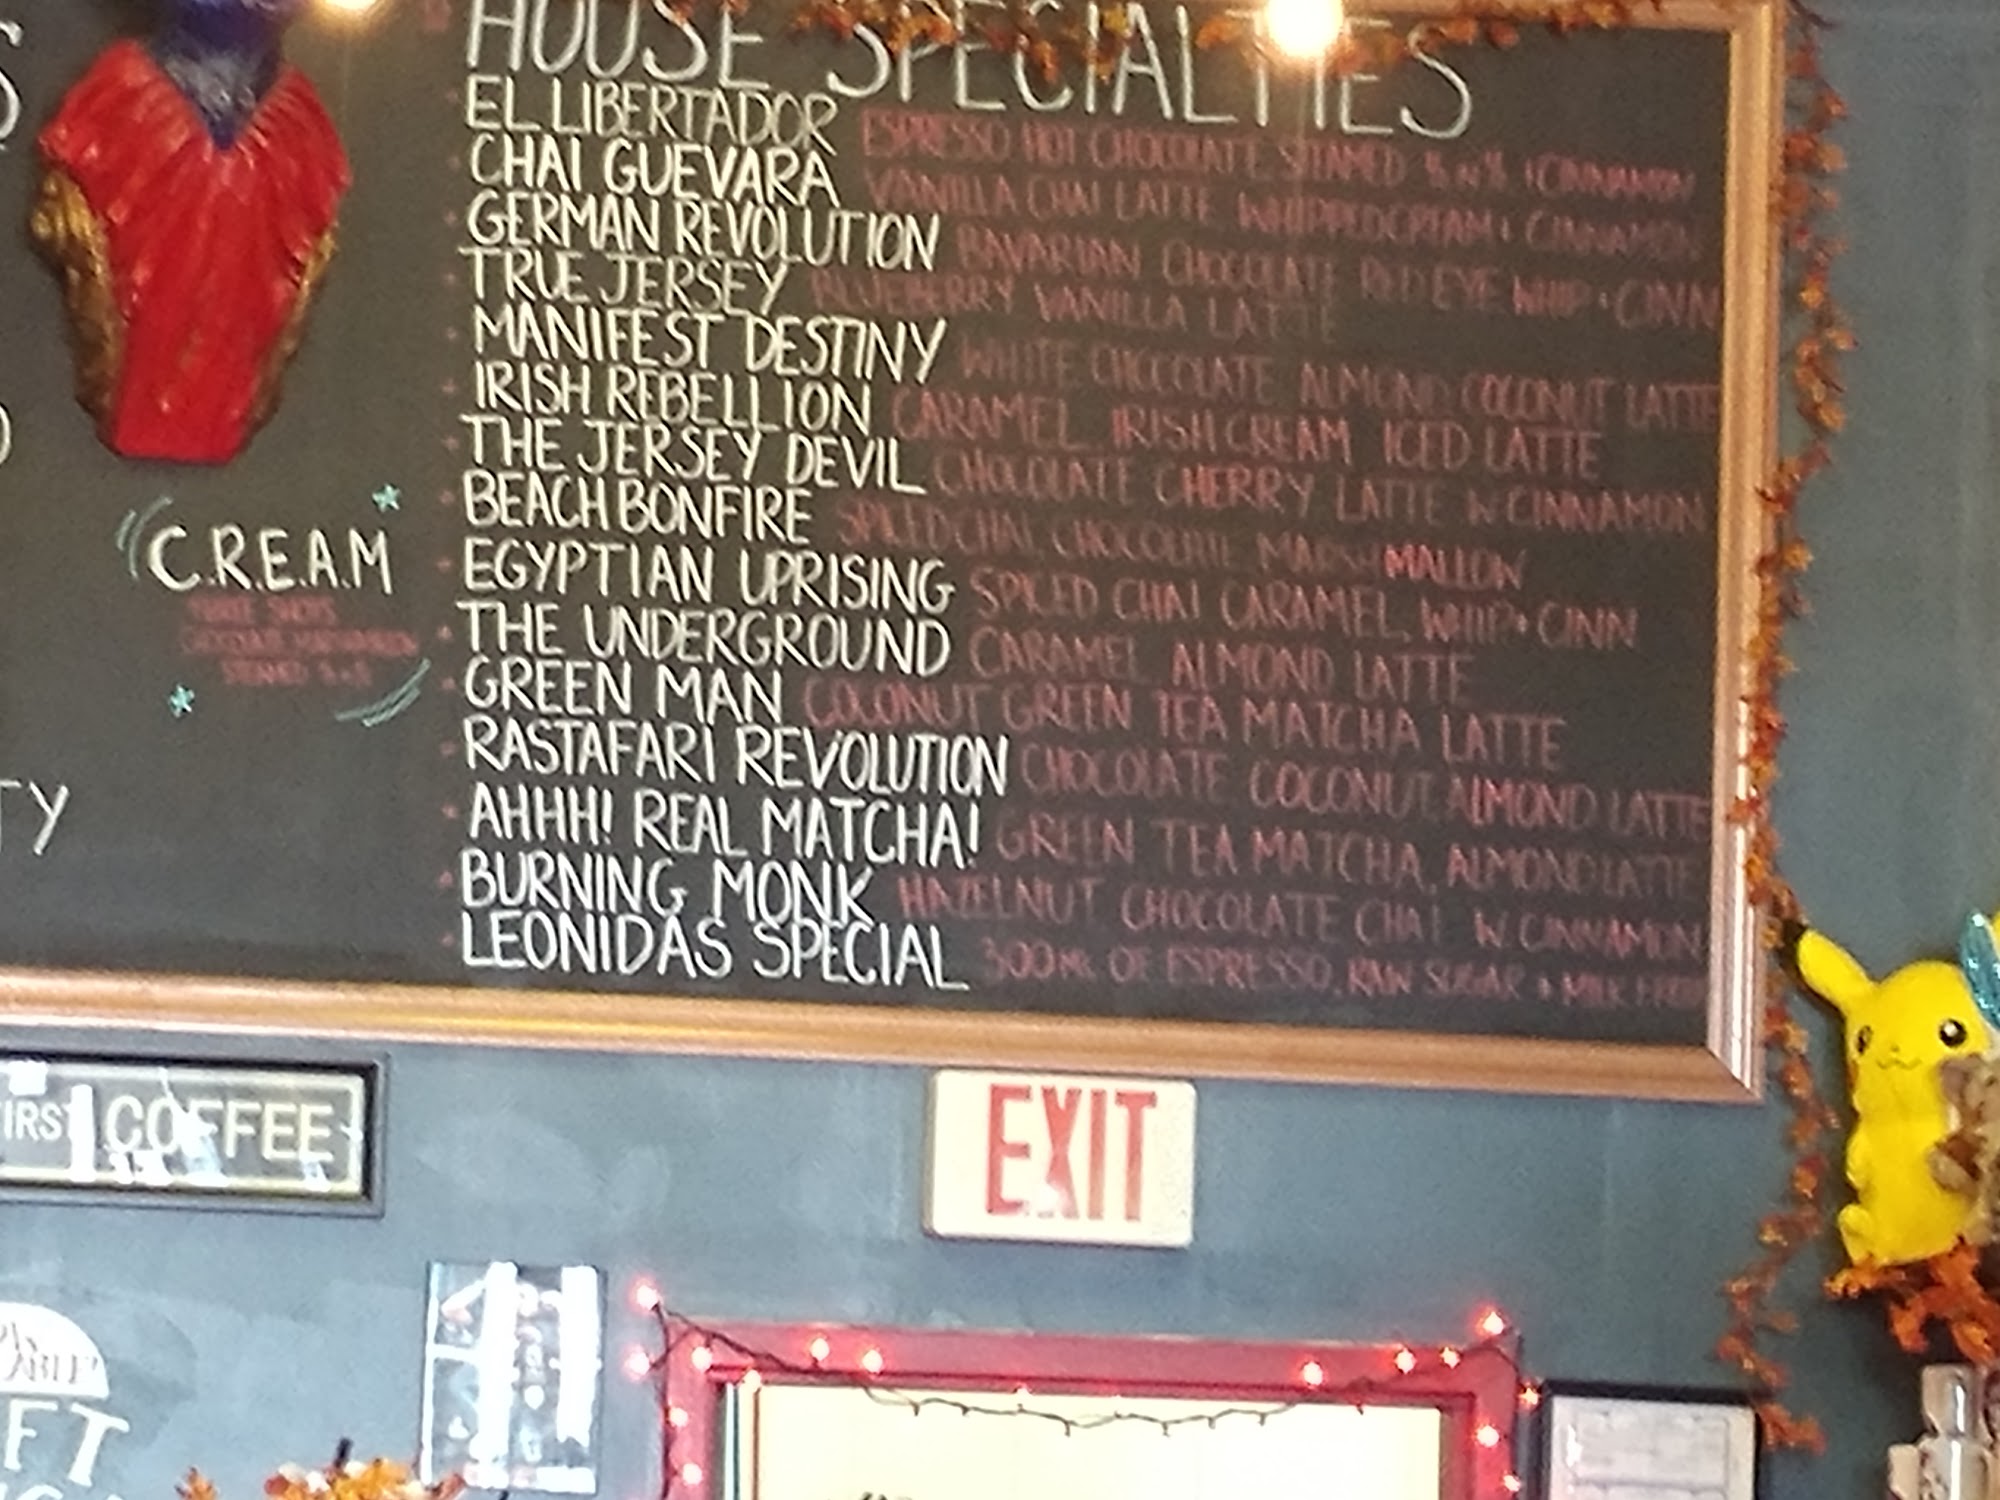 HOUSE SPECIALTIES
EL LIBERTADOR ESPRESSO HOT CHOCOLATE STEAMED CINNAMON
CHAI GUEVARA VANILLA CHAI LATTE WHIPPEDCREAM + CINNAMON
GERMAN REVOLUTION BAVARIAN CHOCOLATE REDEYE WHIP + CINN
TRUE JERSEY BLUEBERRY VANILLA LATTE
MANIFEST DESTINY WHITE CHOCOLATE ALMOND COCONUT LATTE
IRISH REBELLION CARAMEL IRISH CREAM ICED LATTE
THE JERSEY DEVIL CHOCOLATE CHERRY LATTE W CINNAMON
BEACH BONFIRE SPICED CHAI, CHOCOLATE MARSHMALLOW
EGYPTIAN UPRISING SPICED CHAI CARAMEL, WHIP + CINN
THE UNDERGROUND CARAMEL ALMOND LATTE
GREEN MAN COCONUT GREEN TEA MATCHA LATTE
RASTAFARI REVOLUTION CHOCOLATE COCONUT ALMOND LATTE
AHHH! REAL MATCHA! GREEN TEA MATCHA, ALMOND LATTE
BURNING MONK HAZELNUT CHOCOLATE CHAI W CINNAMON
LEONIDAS SPECIAL 300ML OF ESPRESSO, RAW SUGAR + MILK FROTH
C.R.E.A.M
THREE SHOTS
TY
FIRST COFFEE
EXIT